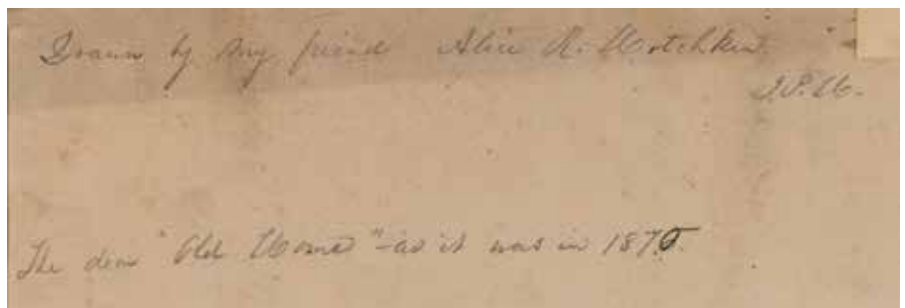 Drawn by my friend Alice R. Hotchkiss
The dear "Old Home" - as it was in 1875.